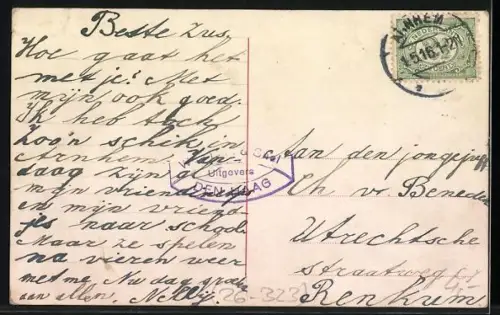 Beste Zus,
Hoe gaat het
met je? Met
mijn ook goed.
Ik heb toch
Zoo'n schek in
Arnhem. Van-
daag zijn al
mijn vriendinnetjes
en mijn vriend-
jes naar school
Maar ze spelen
na vieren weer
met me. Nu dag groeten
aan allen, Nelly.
ARNHEM
5.16.1-2
NEDERLAND
Uitgevers
DEN HAAG
Aan den jongejuffr
Ch v. Beneden
Utrechtsche
straatweg
Renkum
26-323